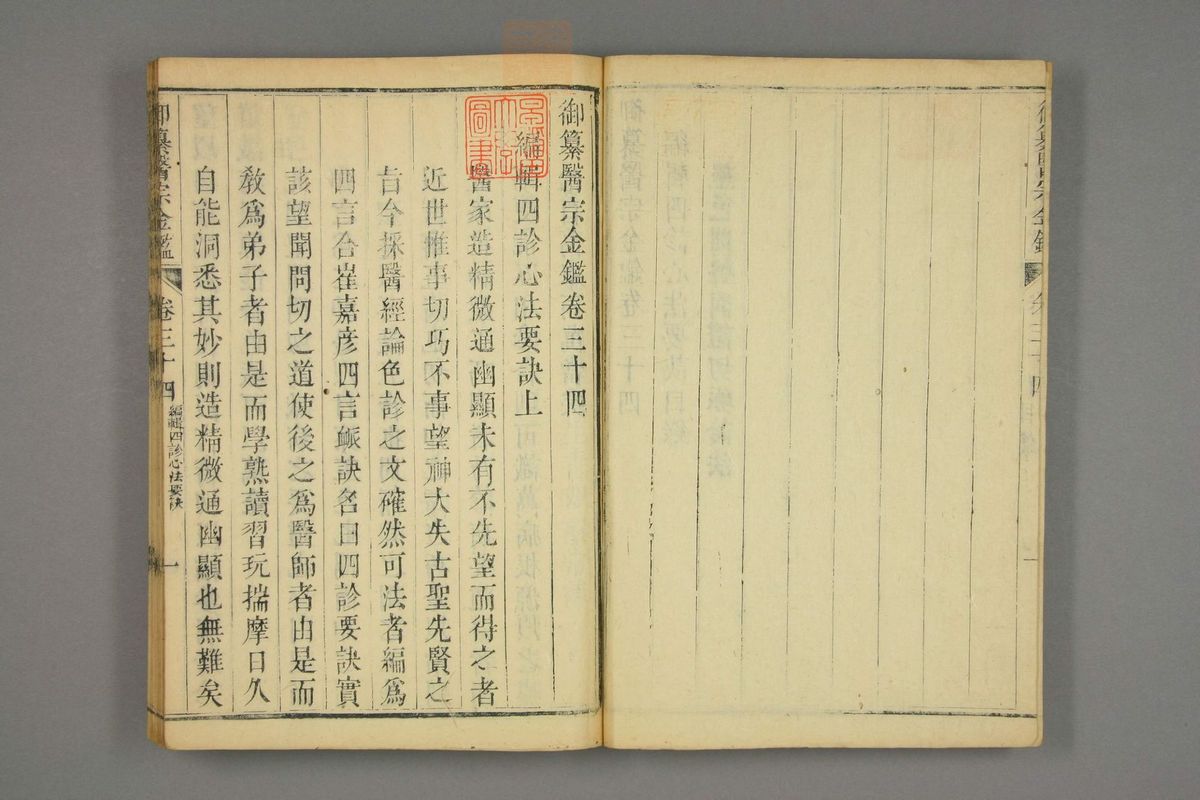 御纂醫宗金鑑卷三十四
編輯四診心法要訣上
醫家造精微通幽顯未有不先望而得之者
近世惟事切巧不事望神大失古聖先賢之
旨今採醫經論色診之文確然可法者編爲
四言合崔嘉彦四言脈訣名曰四診要訣實
該望聞問切之道使後之爲醫師者由是而
敎爲弟子者由是而學熟讀習玩揣摩日久
自能洞悉其妙則造精微通幽顯也無難矣
御纂醫宗金鑑
卷三十四
編輯四診心法要訣
一